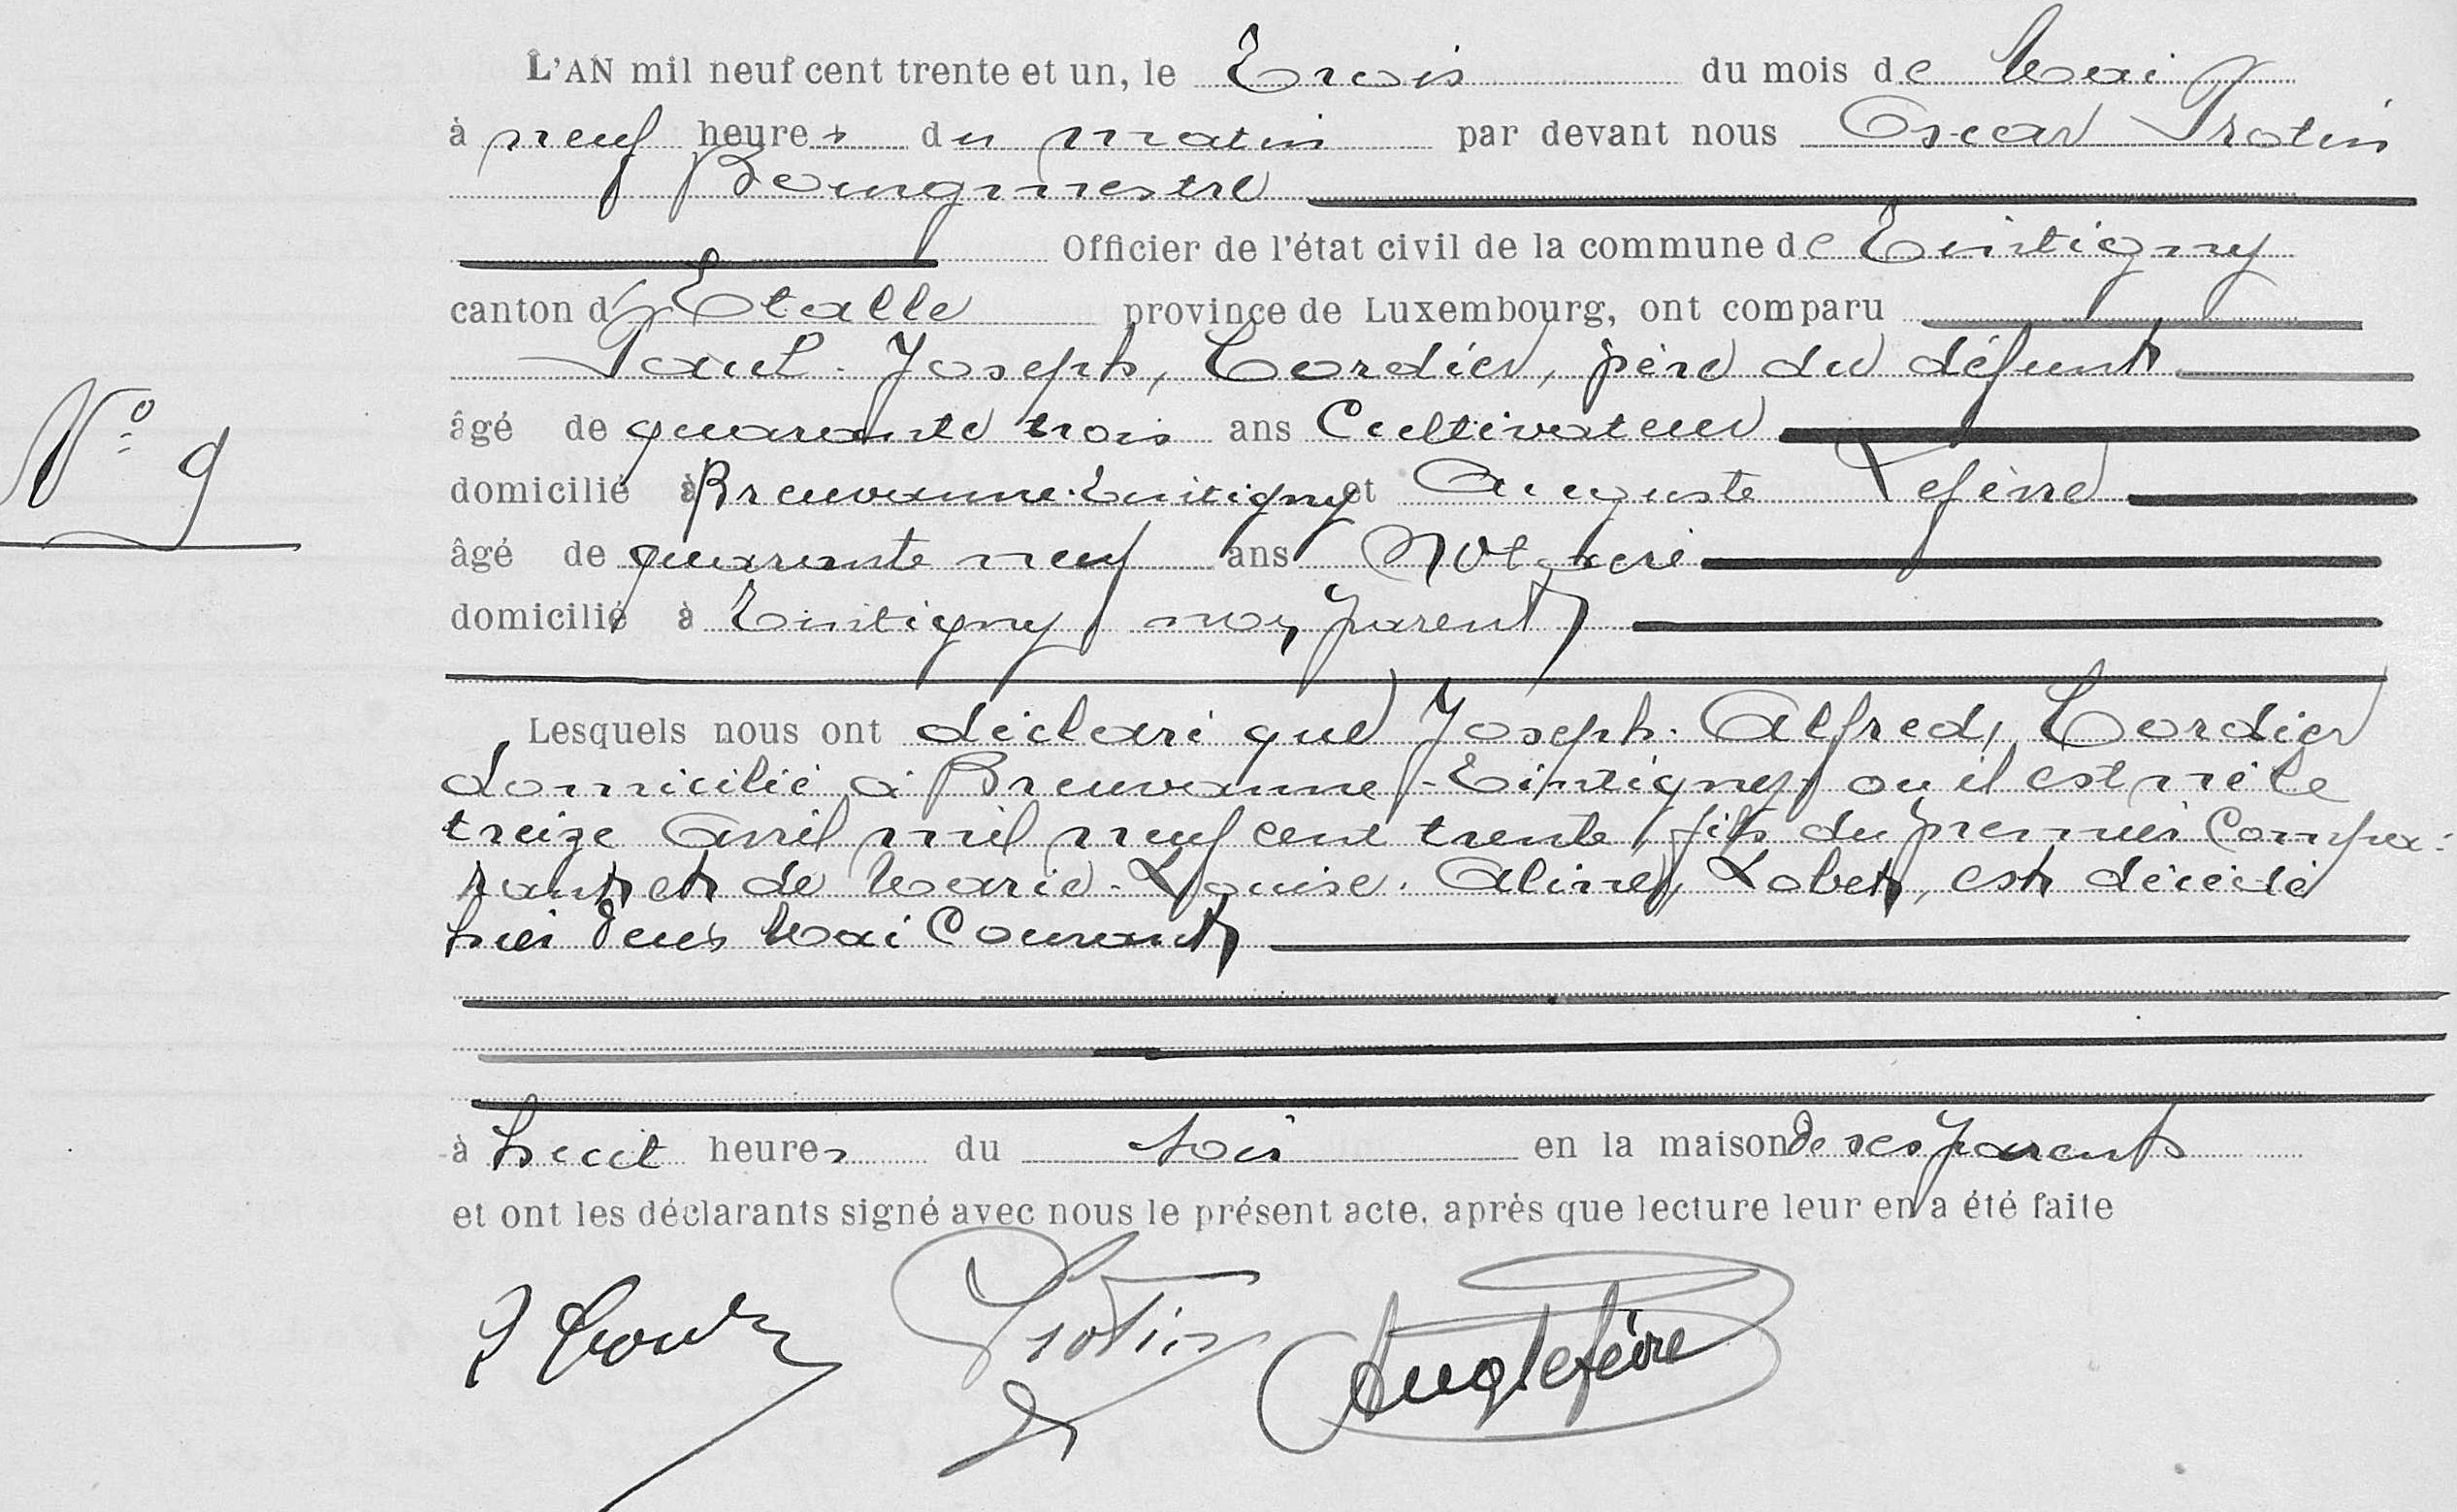 L'AN mil neuf cent trente et un, le Trois du mois de Mai
à neuf heures du matin par devant nous Oscar Protin
Bourgmestre
Officier de l'état civil de la commune de Tintigny
canton d'Etalle province de Luxembourg, ont comparu
Paul-Joseph, Cordier, père du défunt
âgé de quarante trois ans Cultivateur
N° 9
domicilié à Breuvanne-Tintigny et Auguste Lefèvre
âgé de quarante neuf ans Notaire
domicilié à Tintigny non parent
Lesquels nous ont déclaré que Joseph-Alfred, Cordier
domicilié à Breuvanne-Tintigny où il est né le
treize Avril mil neuf cent trente, fils du premier Compa-
rant et de Marie-Louise-Aline, Lobet, est décédé
hier deux Mai Courant
à huit heures du soir en la maison de ses parents
et ont les déclarants signé avec nous le présent acte, après que lecture leur en a été faite
Protin AugLefèvre